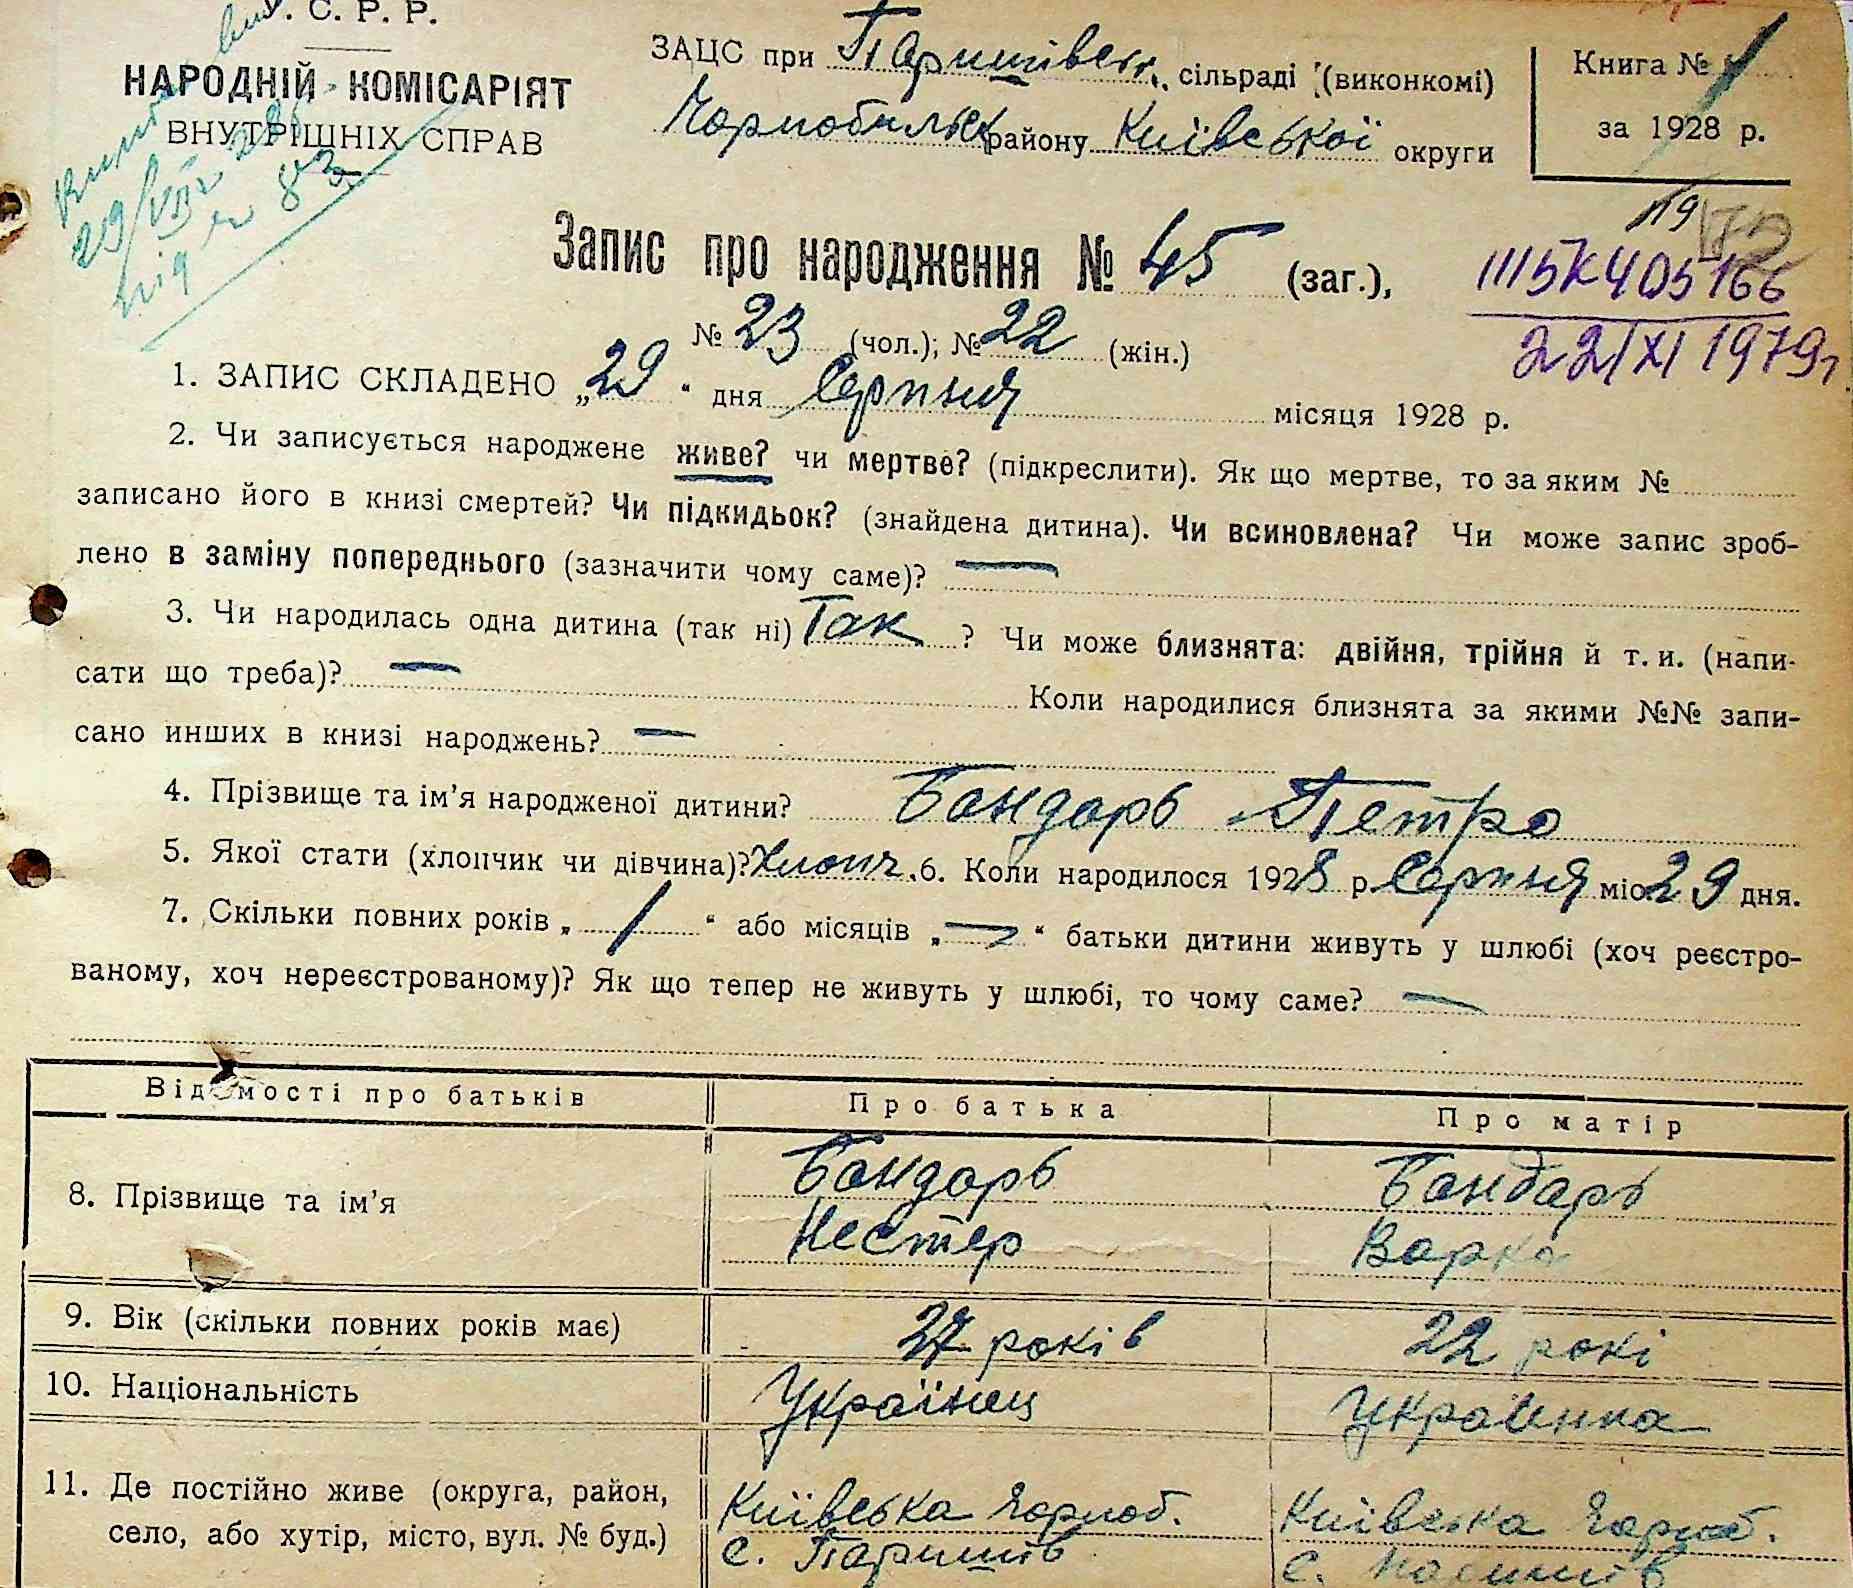 У. С. Р. Р.
НАРОДНІЙ КОМІСАРІЯТ
ВНУТРІШНІХ СПРАВ
29/VIII
ЗАЦС при Паришівськ. сільраді (виконкомі)
Чорнобильськ району Київської округи
Книга № 1
за 1928 р.
Запис про народження № 45 (заг.),
№ 23 (чол.); № 22 (жін.)
119
III БК 405166
22/XI 1979г
1. ЗАПИС СКЛАДЕНО „29“ дня Серпня місяця 1928 р.
2. Чи записується народжене живе? чи мертве? (підкреслити). Як що мертве, то за яким №
записано його в книзі смертей? Чи підкидьок? (знайдена дитина). Чи всиновлена? Чи може запис зроб-
лено в заміну попереднього (зазначити чому саме)? —
3. Чи народилась одна дитина (так ні) Так ? Чи може близнята: двійня, трійня й т. и. (напи-
сати що треба)? — Коли народилися близнята за якими №№ запи-
сано инших в книзі народжень? —
4. Прізвище та ім'я народженої дитини? Бондарь Петро
5. Якої стати (хлопчик чи дівчина)? Хлопч. 6. Коли народилося 1928 р. Серпня міс. 29 дня.
7. Скільки повних років „ 1 “ або місяців „ — “ батьки дитини живуть у шлюбі (хоч реєстро-
ваному, хоч нереєстрованому)? Як що тепер не живуть у шлюбі, то чому саме? —
Відомості про батьків Про батька Про матір
8. Прізвище та ім'я Бондарь Нестер Бондарь Варка
9. Вік (скільки повних років має) 27 років 22 рокі
10. Національність Українец Українка
11. Де постійно живе (округа, район, Київська Чорноб. Київська Чорноб.
село, або хутір, місто, вул. № буд.) с. Паришів с. Паришів